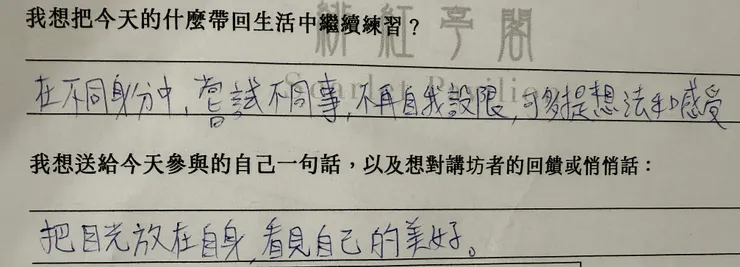 我想把今天的什麼帶回生活中繼續練習？
緋紅亭閣
Scarlet Pavilion
在不同身分中，嘗試不同事，不再自我設限，可多提想法和感受
我想送給今天參與的自己一句話，以及想對講坊者的回饋或悄悄話：
把目光放在自身，看見自己的美好。